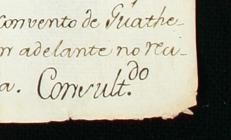 convento de Guathe-
n adelante no reci-
a. Consult.do